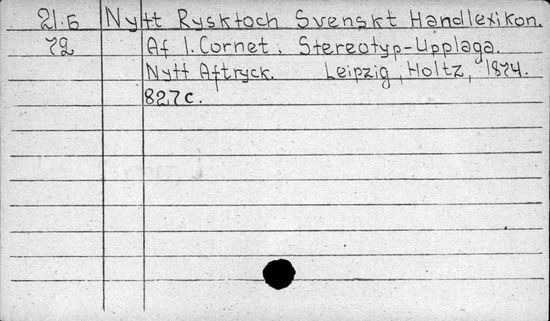 21.6 Nytt Ryskt och Svenskt Handlexikon.
72 Af I. Cornet. Stereotyp-Upplaga.
Nytt Aftryck. Leipzig, Holtz, 1874.
827c.